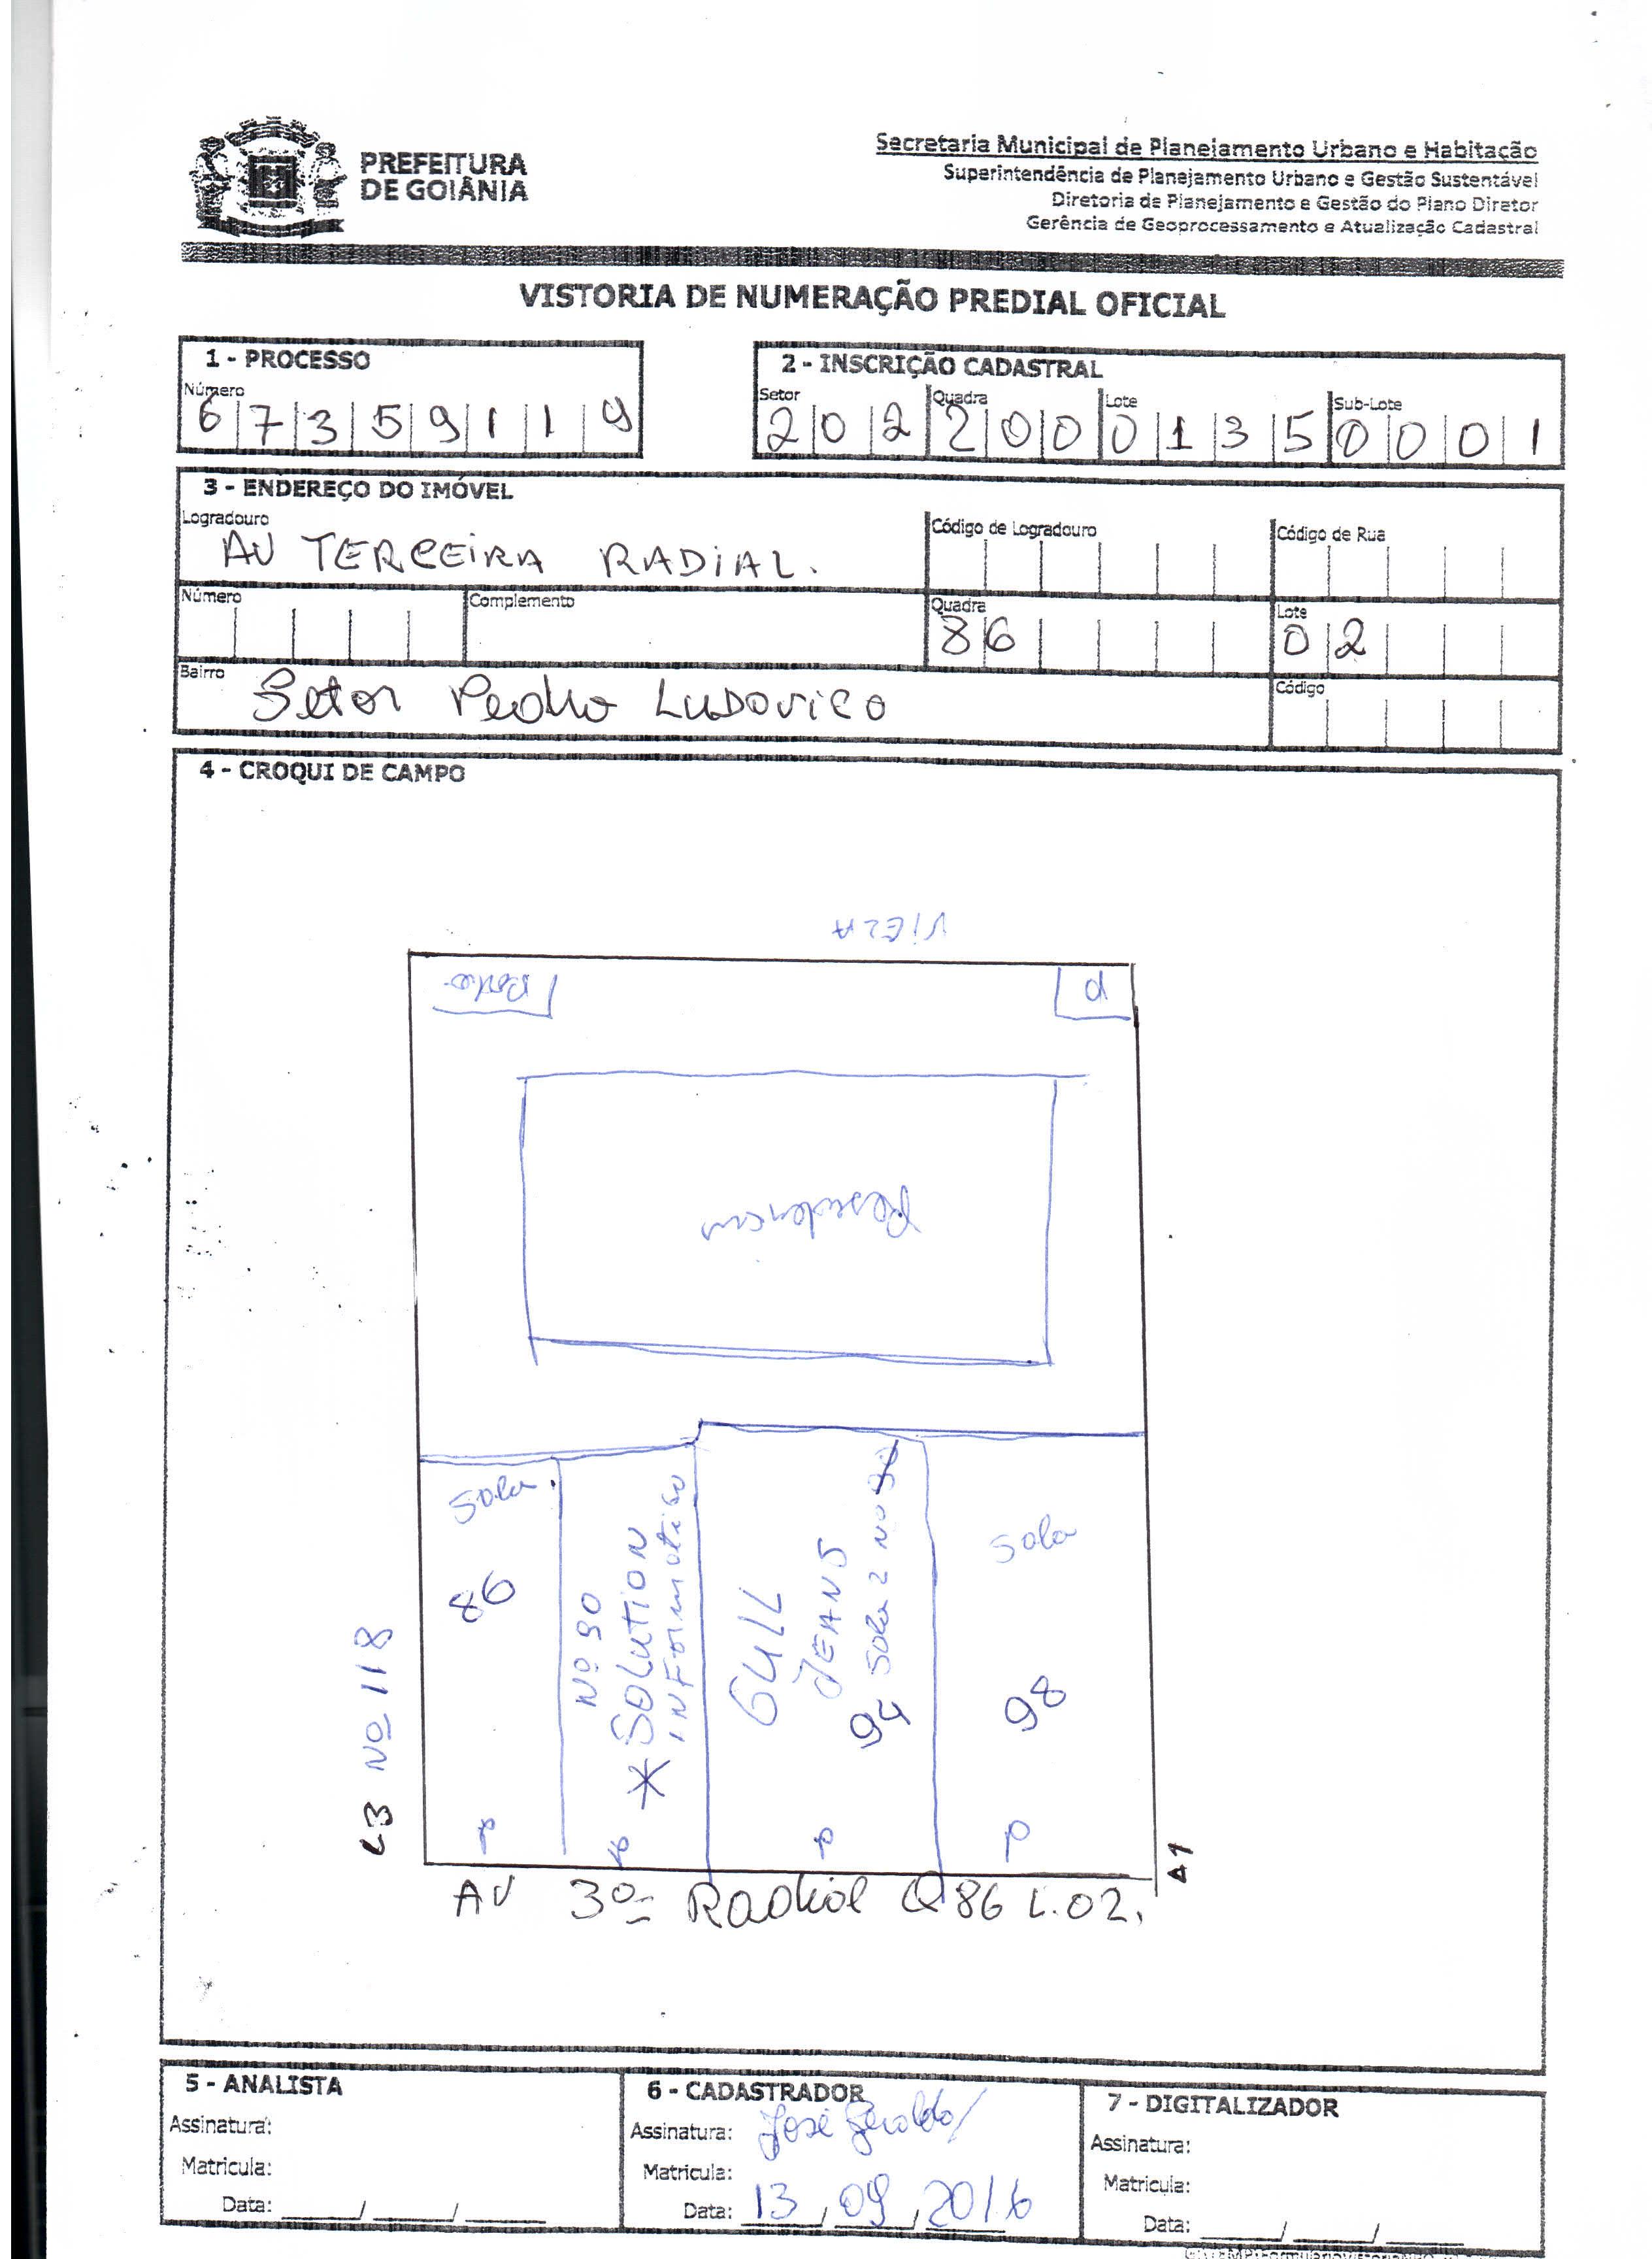 PREFEITURA
DE GOIÂNIA
Secretaria Municipal de Planejamento Urbano e Habitação
Superintendência de Planejamento Urbano e Gestão Sustentável
Diretoria de Planejamento e Gestão do Plano Diretor
Gerência de Geoprocessamento e Atualização Cadastral
VISTORIA DE NUMERAÇÃO PREDIAL OFICIAL
1 - PROCESSO
Número
6 7 3 5 9 1 1 9
2 - INSCRIÇÃO CADASTRAL
Setor Quadra Lote Sub-Lote
2 0 2 2 0 0 0 1 3 5 0 0 0 1
3 - ENDEREÇO DO IMÓVEL
Logradouro Código de Logradouro Código de Rua
AV TERCEIRA RADIAL.
Número Complemento Quadra Lote
86 02
Bairro Código
Setor Pedro LUDOVICO
4 - CROQUI DE CAMPO
VIELA
Portão
P
Residencia
Sala
86
Nº 90
* SOLUTION
INFormática
GULL
JEANS
94 Sala 2 Nº 90
Sala
98
L3 Nº 118
P
P
P
P
AV 3ª Radial Q 86 L.02.
5 - ANALISTA
Assinatura:
Matrícula:
Data: ____/____/____
6 - CADASTRADOR
Assinatura: José Geraldo
Matrícula:
Data: 13/09/2016
7 - DIGITALIZADOR
Assinatura:
Matrícula:
Data: ____/____/____